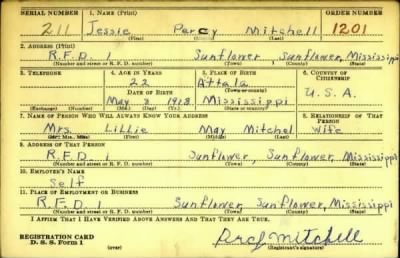 SERIAL NUMBER 1. NAME (Print) ORDER NUMBER
211 Jessie Percy Mitchell 1201
2. ADDRESS (Print)
R.F.D. 1 Sunflower Sunflower, Mississippi
(Number and street or R. F. D. number) (Town) (County) (State)
3. TELEPHONE 4. AGE IN YEARS 5. PLACE OF BIRTH 6. COUNTRY OF CITIZENSHIP
22 Attala
(Town or county)
DATE OF BIRTH
May 8 1918 Mississippi U.S.A.
(Exchange) (Number) (Mo.) (Day) (Yr.) (State or country)
7. NAME OF PERSON WHO WILL ALWAYS KNOW YOUR ADDRESS 8. RELATIONSHIP OF THAT PERSON
Mrs. Lillie May Mitchel Wife
(Mr., Mrs., Miss) (First) (Middle) (Last)
9. ADDRESS OF THAT PERSON
R.F.D. 1 Sunflower, Sunflower, Mississippi
(Number and street or R. F. D. number) (Town) (County) (State)
10. EMPLOYER'S NAME
Self
11. PLACE OF EMPLOYMENT OR BUSINESS
R.F.D. 1 Sunflower, Sunflower, Mississippi
(Number and street or R. F. D. number) (Town) (County) (State)
I AFFIRM THAT I HAVE VERIFIED ABOVE ANSWERS AND THAT THEY ARE TRUE.
REGISTRATION CARD
D. S. S. Form 1 (over) Mitchell
(Registrant's signature)